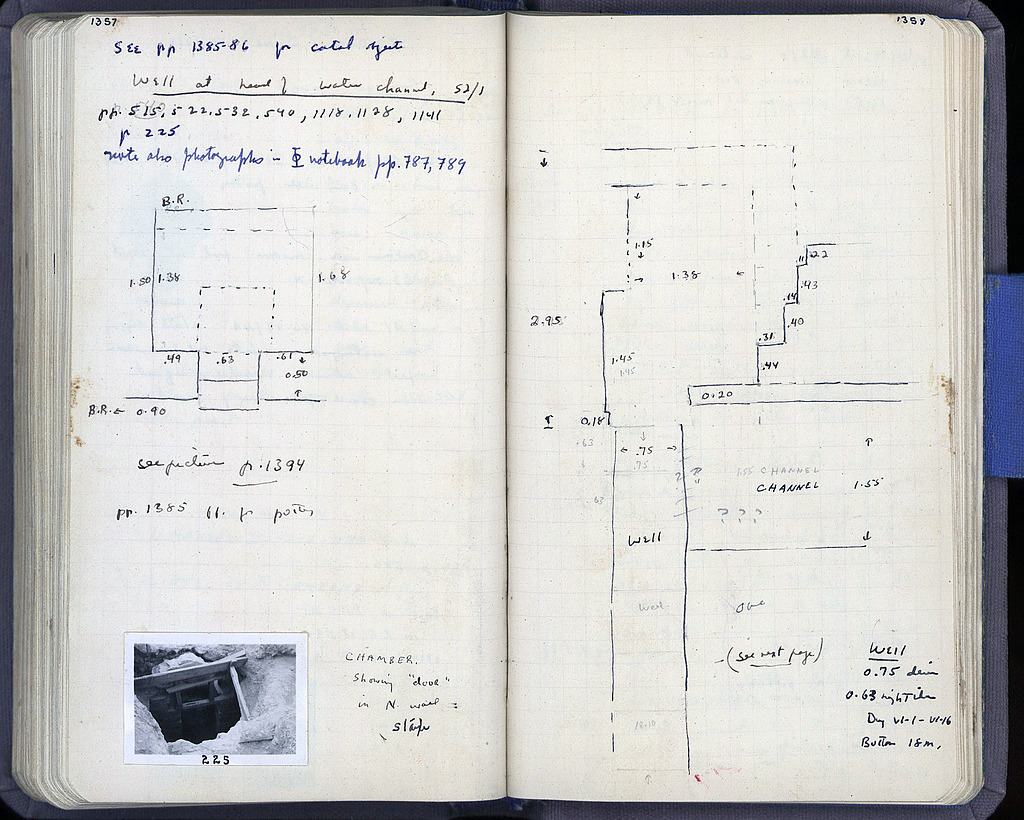 1357
SEE pp 1385-86 for catal objects
Well at head of water channel, 52/1
pp. 515, 522, 532, 540, 1118, 1128, 1141
p 225
note also photographs in Φ notebook pp. 787, 789
B.R.
1.50 1.38 1.68
.49 .63 .61
0.50
B.R. ← 0.90
see picture p. 1394
pp. 1385 ff. for pottery
CHAMBER.
Showing "door"
in N. wall =
225
1358
1.15
1.38
.11 .22
.43
.14
.40
2.95
.31
1.45
1.45
.44
0.20
0.18
.63
.75
.75
1.55 CHANNEL
CHANNEL 1.55
.63
? ? ?
Well
Well
(see next page)
Well
0.75 diam
0.63 high tiles
Dug VI-1 - VI-16
Bottom 18 m.